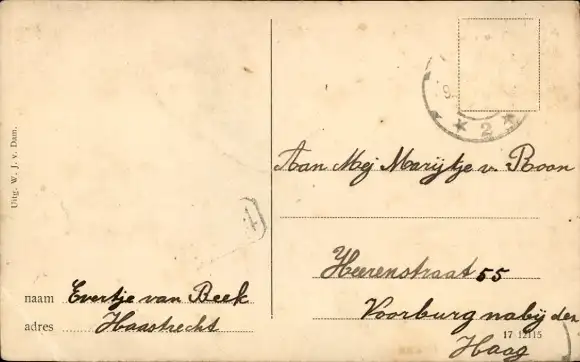 Uitg. W. J. v. Dam.
naam Evertje van Beek
adres Haastrecht
4
2
Aan Mej Marijtje v. Roon
Heerenstraat 55
Voorburg nabij den
17 12115
Haag